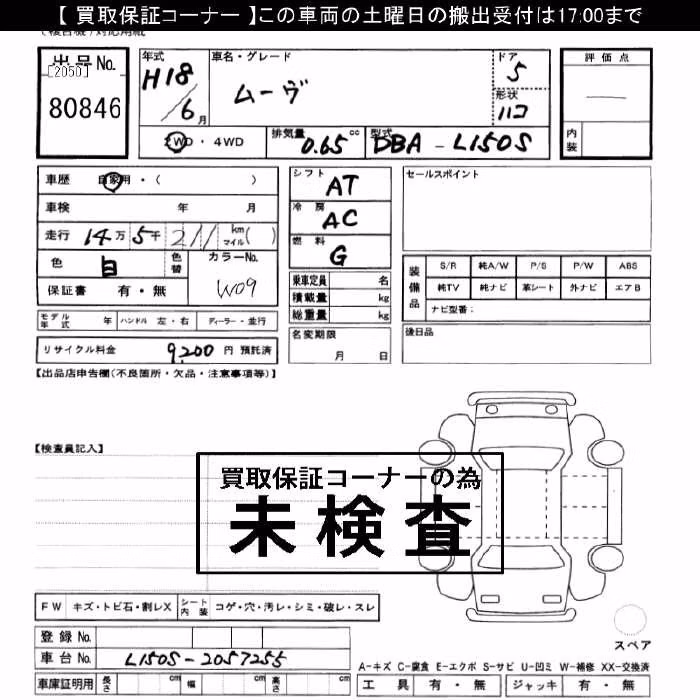 【 買取保証コーナー 】この車両の土曜日の搬出受付は17:00まで
出品No.
[2050]
80846
年式
H18/6月
車名・グレード
ムーヴ
ドア
5
形状
ハコ
評価点
内装
2WD・4WD
排気量 0.65 cc
型式 DBA - L150S
車歴 自家用・( )
車検 年 月
走行 14万 5千 211 km マイル( )
色 白
色替
カラーNo.
W09
保証書 有・無
モデル年式 年 ハンドル 左・右 ディーラー・並行
リサイクル料金 9,200 円 預託済
シフト AT
冷房 AC
燃料 G
乗車定員 名
積載量 kg
総重量 kg
名変期限
月 日
セールスポイント
装備品
S/R 純A/W P/S P/W ABS
純TV 純ナビ 革シート 外ナビ エアB
ナビ型番:
後日品
【出品店申告欄(不良箇所・欠品・注意事項等)】
【検査員記入】
買取保証コーナーの為
未検査
FW キズ・トビ石・割レX シート内装 コゲ・穴・汚レ・シミ・破レ・スレ
登録No.
車台No. L150S-2057255
車庫証明用 長さ cm 幅 cm 高さ cm
スペア
A-キズ C-腐食 E-エクボ S-サビ U-凹ミ W-補修 XX-交換済
工具 有・無 ジャッキ 有・無